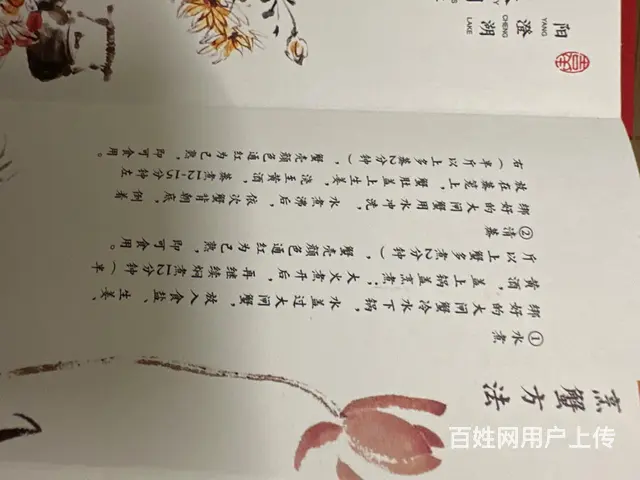 阳澄湖
YANG CHENG LAKE
烹蟹方法
①水煮
绑好的大闸蟹冷水下锅，水盖过大闸蟹，放入食盐、生姜、
黄酒，盖上锅盖蒸煮；大火煮开后，再继续焖煮12分钟（半
斤以上多煮2分钟），蟹壳颜色通红为已熟，即可食用。
②清蒸
绑好的大闸蟹用水冲洗，水煮沸后，依次蟹背朝底，倒着
放在蒸笼上，蟹肚上生姜，浇至黄酒，蒸煮12-15分钟左
右（半斤以上多蒸2分钟），蟹壳颜色通红为已熟，即可食用。
百姓网用户上传